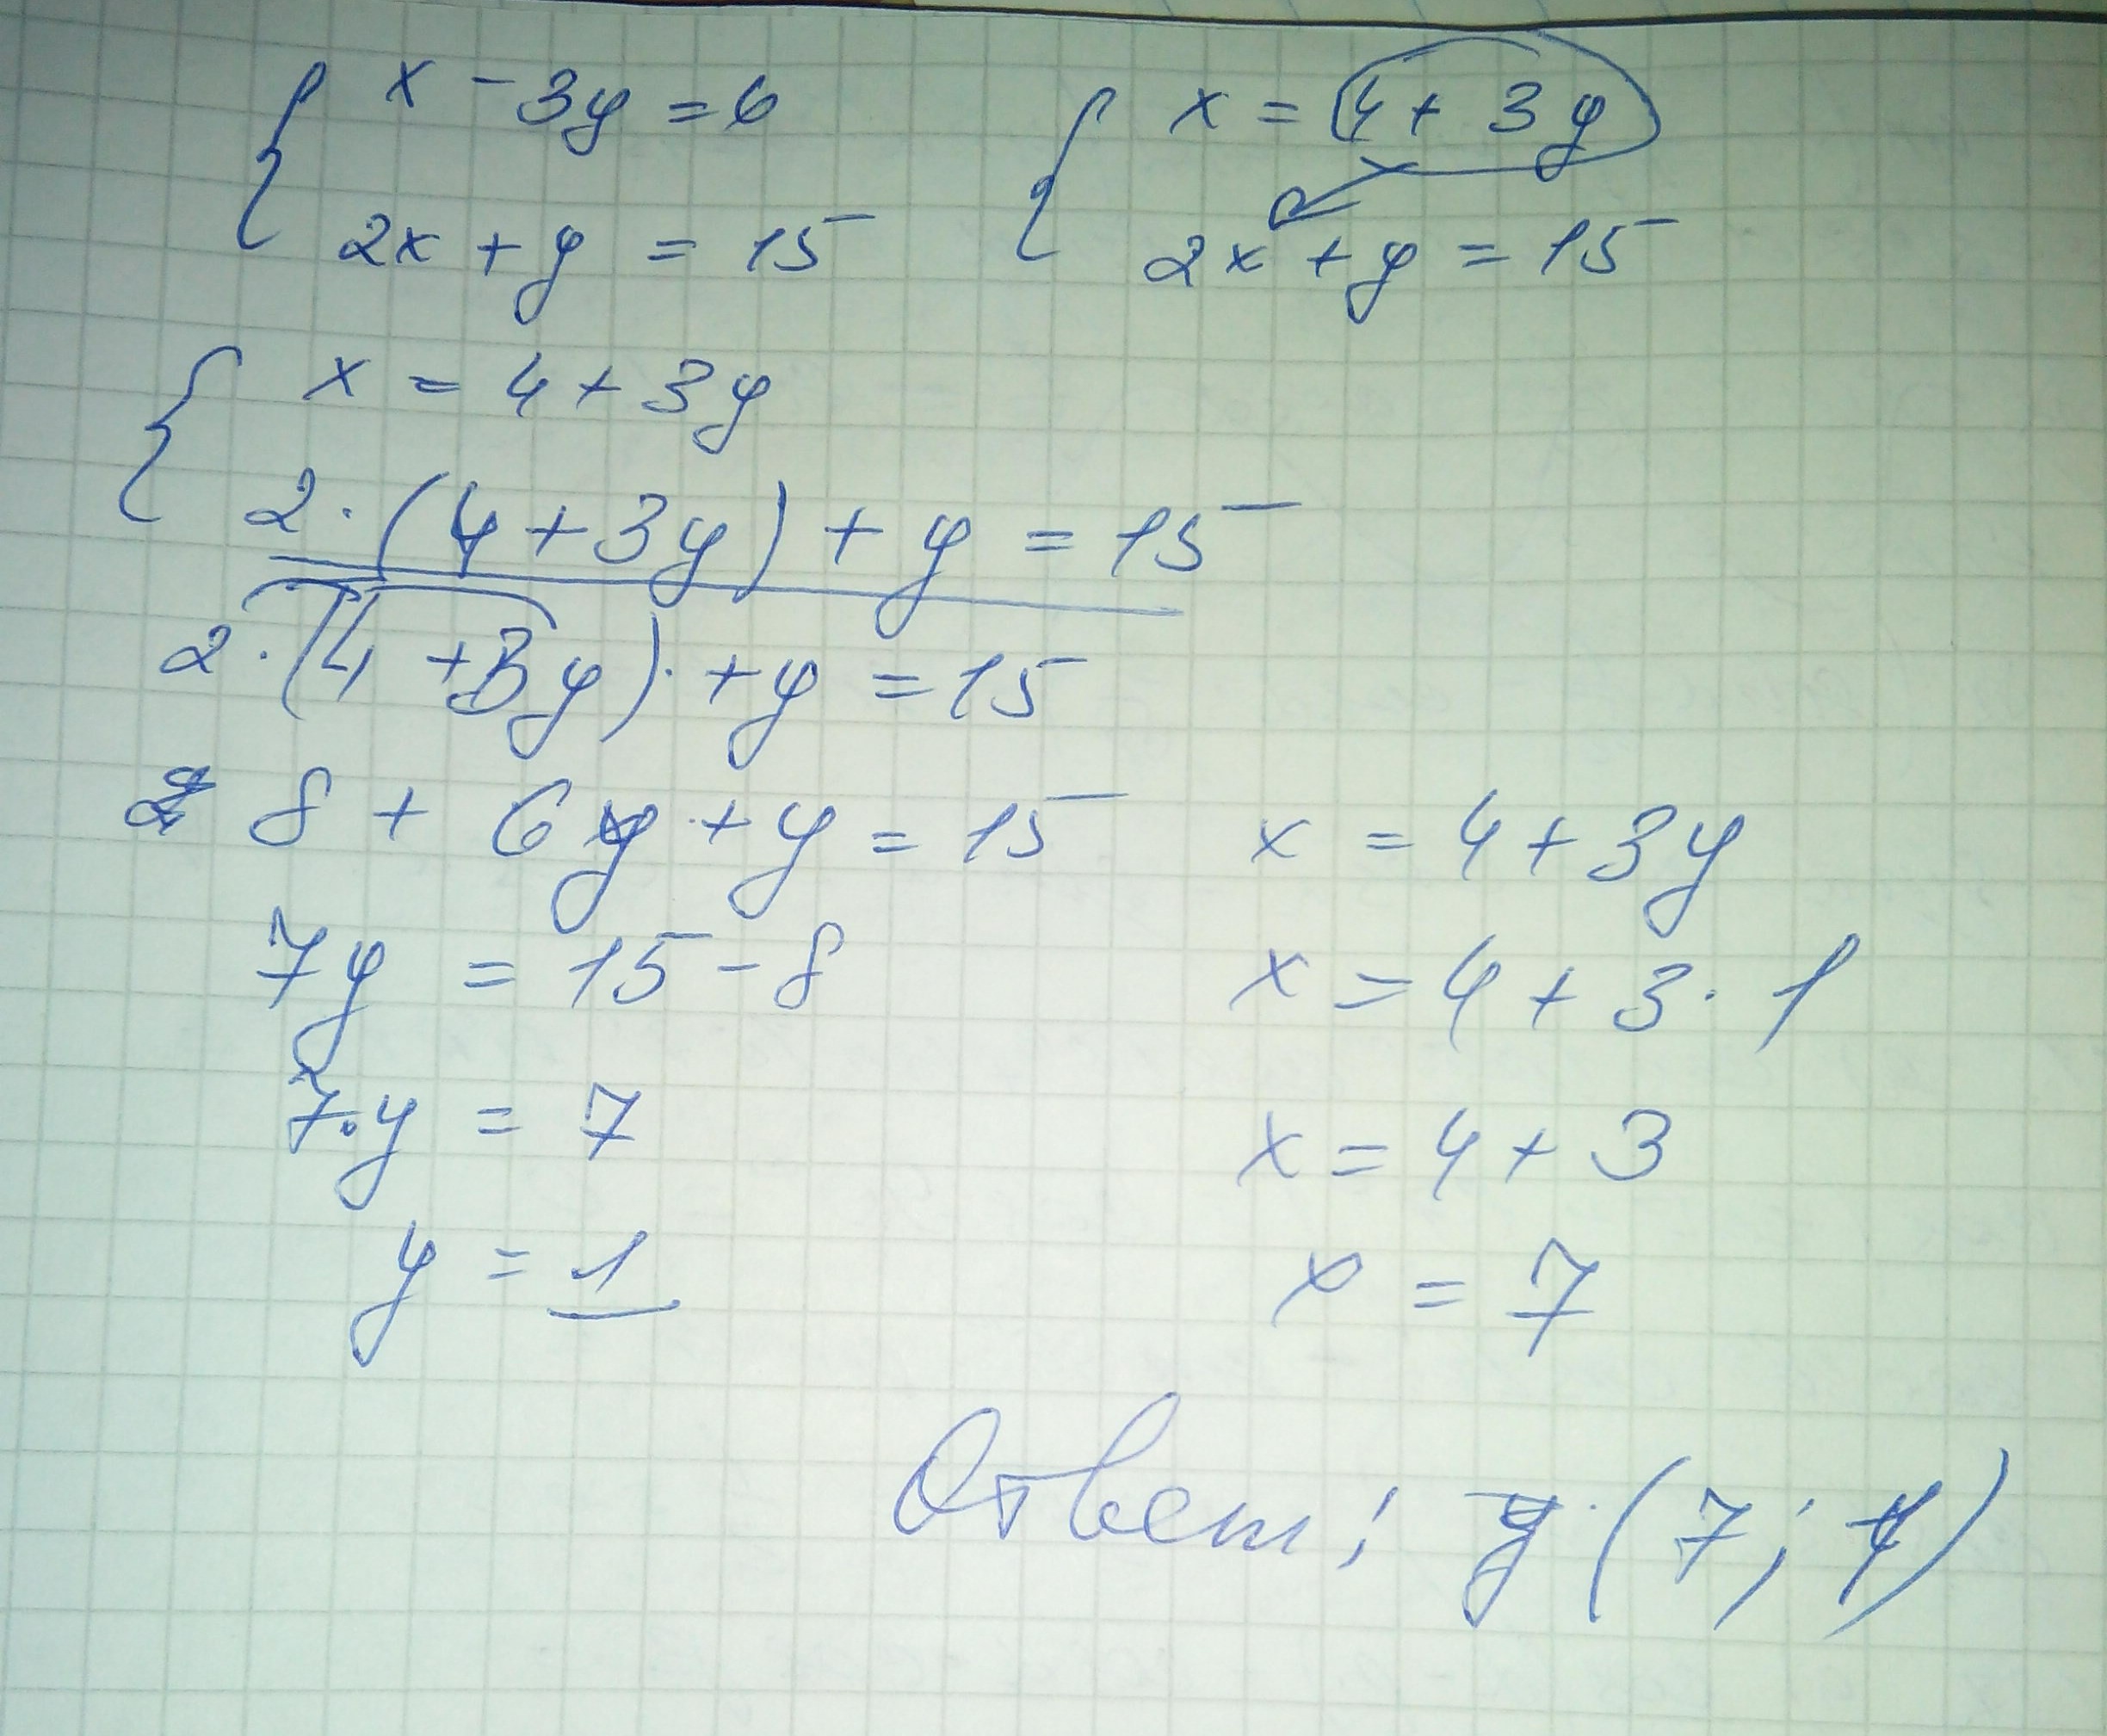 x - 3y = 6
2x + y = 15
x = 4 + 3y
2x + y = 15
x = 4 + 3y
2·(4 + 3y) + y = 15
2·(4 + 3y) + y = 15
8 + 6y + y = 15
7y = 15 - 8
7·y = 7
y = 1
x = 4 + 3y
x = 4 + 3·1
x = 4 + 3
x = 7
Ответ: (7; 1)